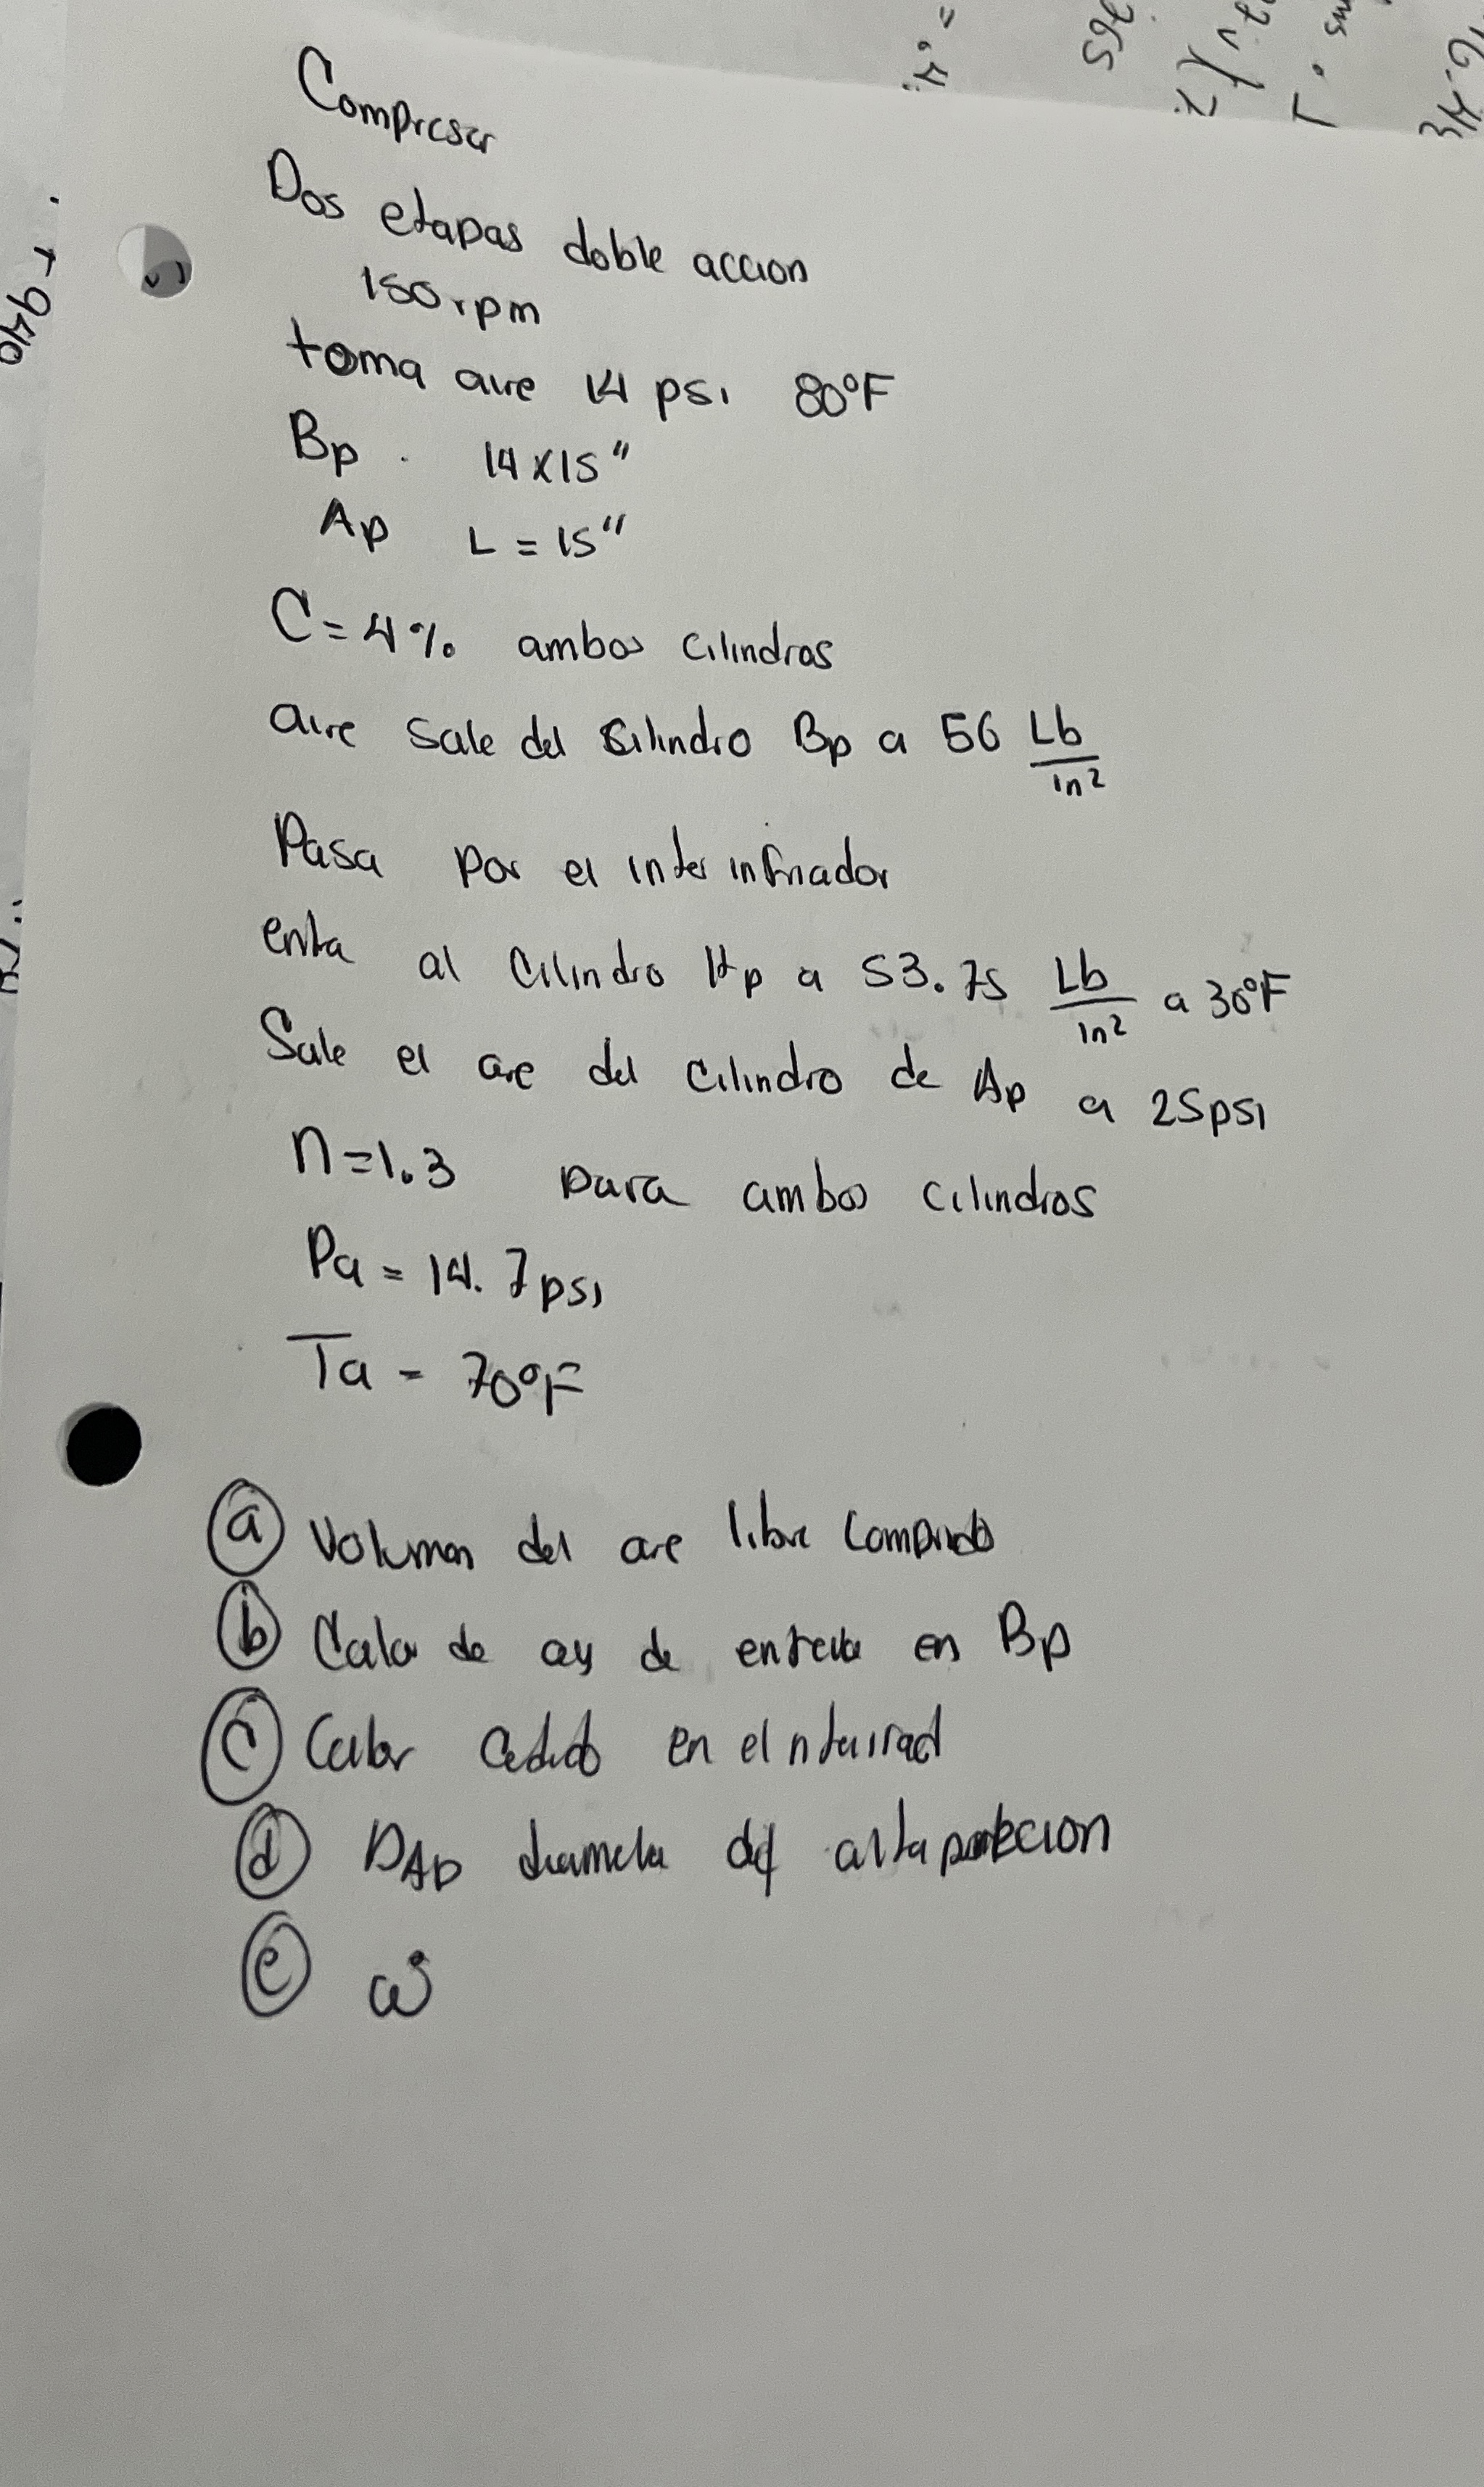 Compresor
Dos etapas doble accion
150 rpm
toma aire 14 psi 80°F
Bp. 14x15"
Ap L = 15"
C = 4% ambos cilindros
aire sale del cilindro Bp a 56 Lb/in²
Pasa por el inter infriador
entra al cilindro Hp a 53.75 Lb/in² a 30°F
Sale el aire del cilindro de Ap a 25psi
n=1.3 para ambos cilindros
Pa = 14.7psi
Ta = 70°F
(a) Volumen del aire libre
(b) Calor de de en Bp
(c) Calor cedido en el
(d) DAP
(e) ẇ